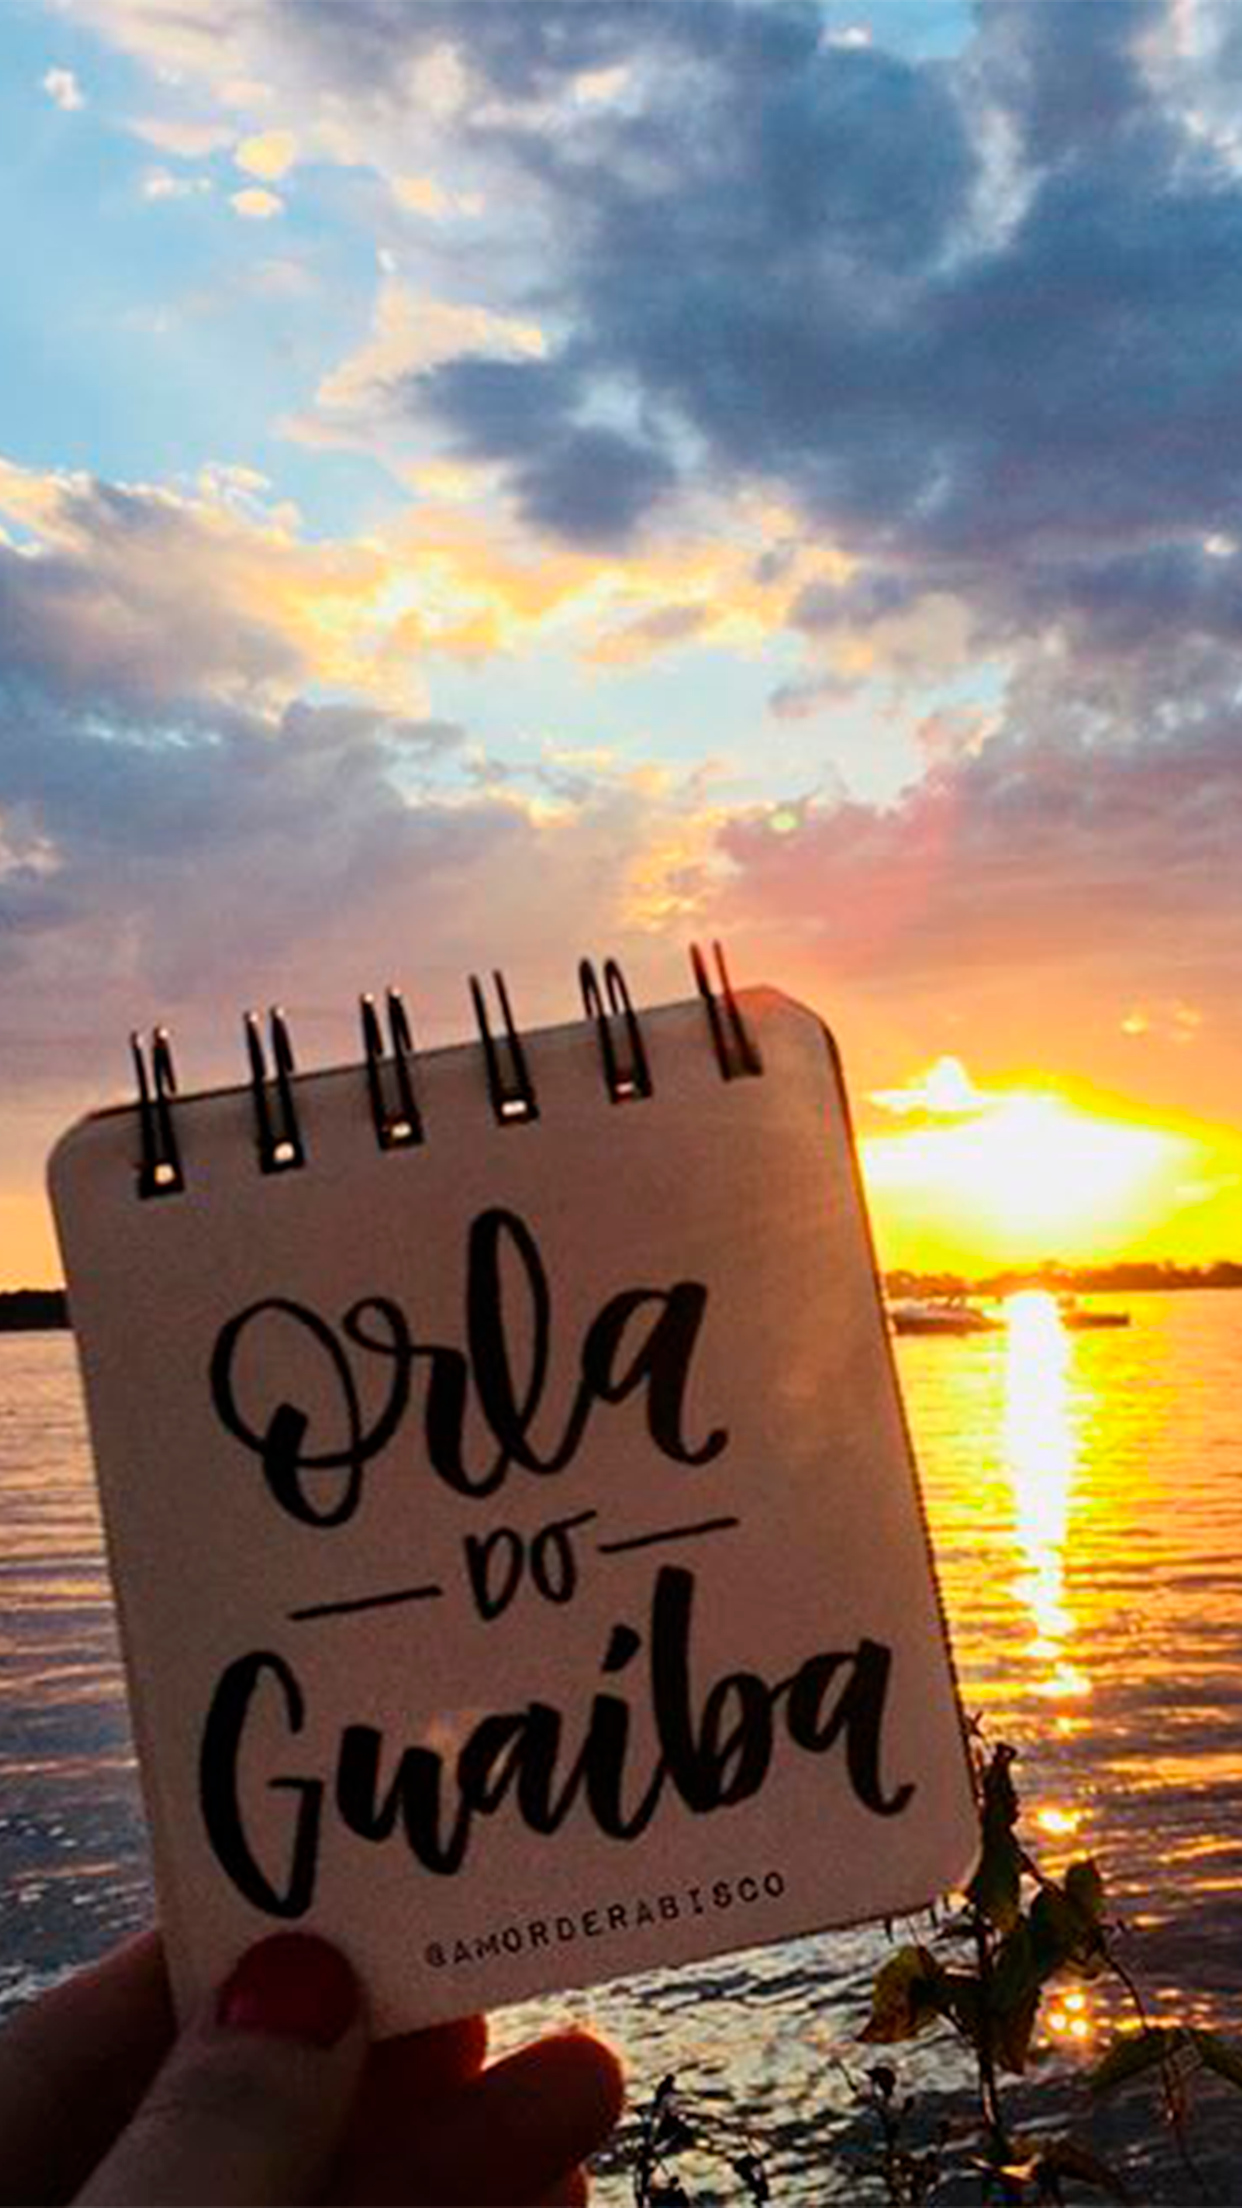 Orla
DO
Guaíba
@AMORDERABISCO